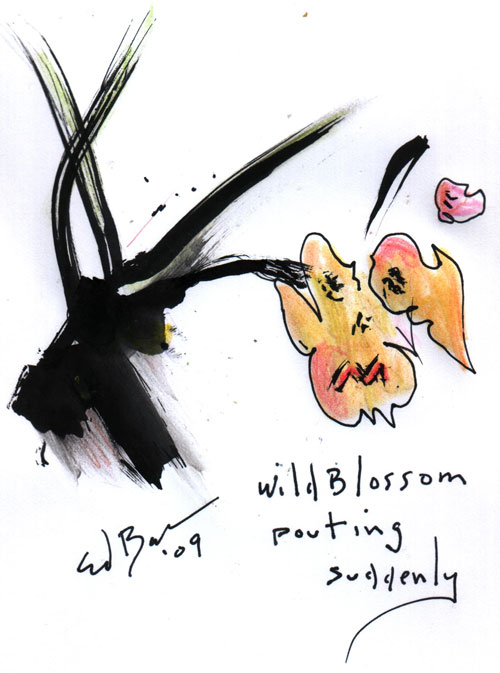 wild Blossom
pouting
suddenly
Ed Bar .09